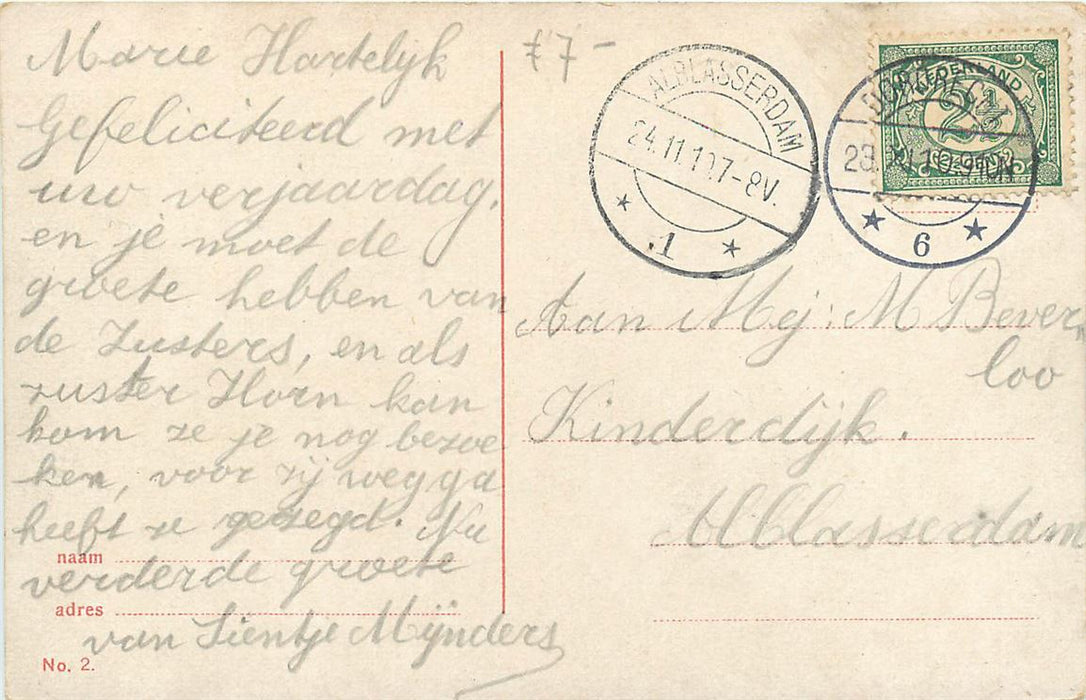 Marie Hartelijk
Gefeliciteerd met
uw verjaardag.
en je moet de
groete hebben van
de Zusters, en als
zuster Horn kan
kom ze je nog bezoe
ken, voor zij weg ga
heeft ze gezegd. Nu
verderde groete
van Sientje Mijnders
naam
adres
No. 2.
7-
ALBLASSERDAM
24.11.10.7-8V.
1
NEDERLAND
2½
CENT
DORDRECHT
23.11.10.9-10N
6
Aan Mej: M Bever
loo
Kinderdijk.
Alblasserdam